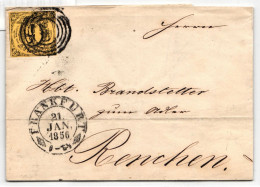 Herrn
Hbt. Brandstetter
zum Adler
FRANKFURT
21
JAN.
1856
Renchen.